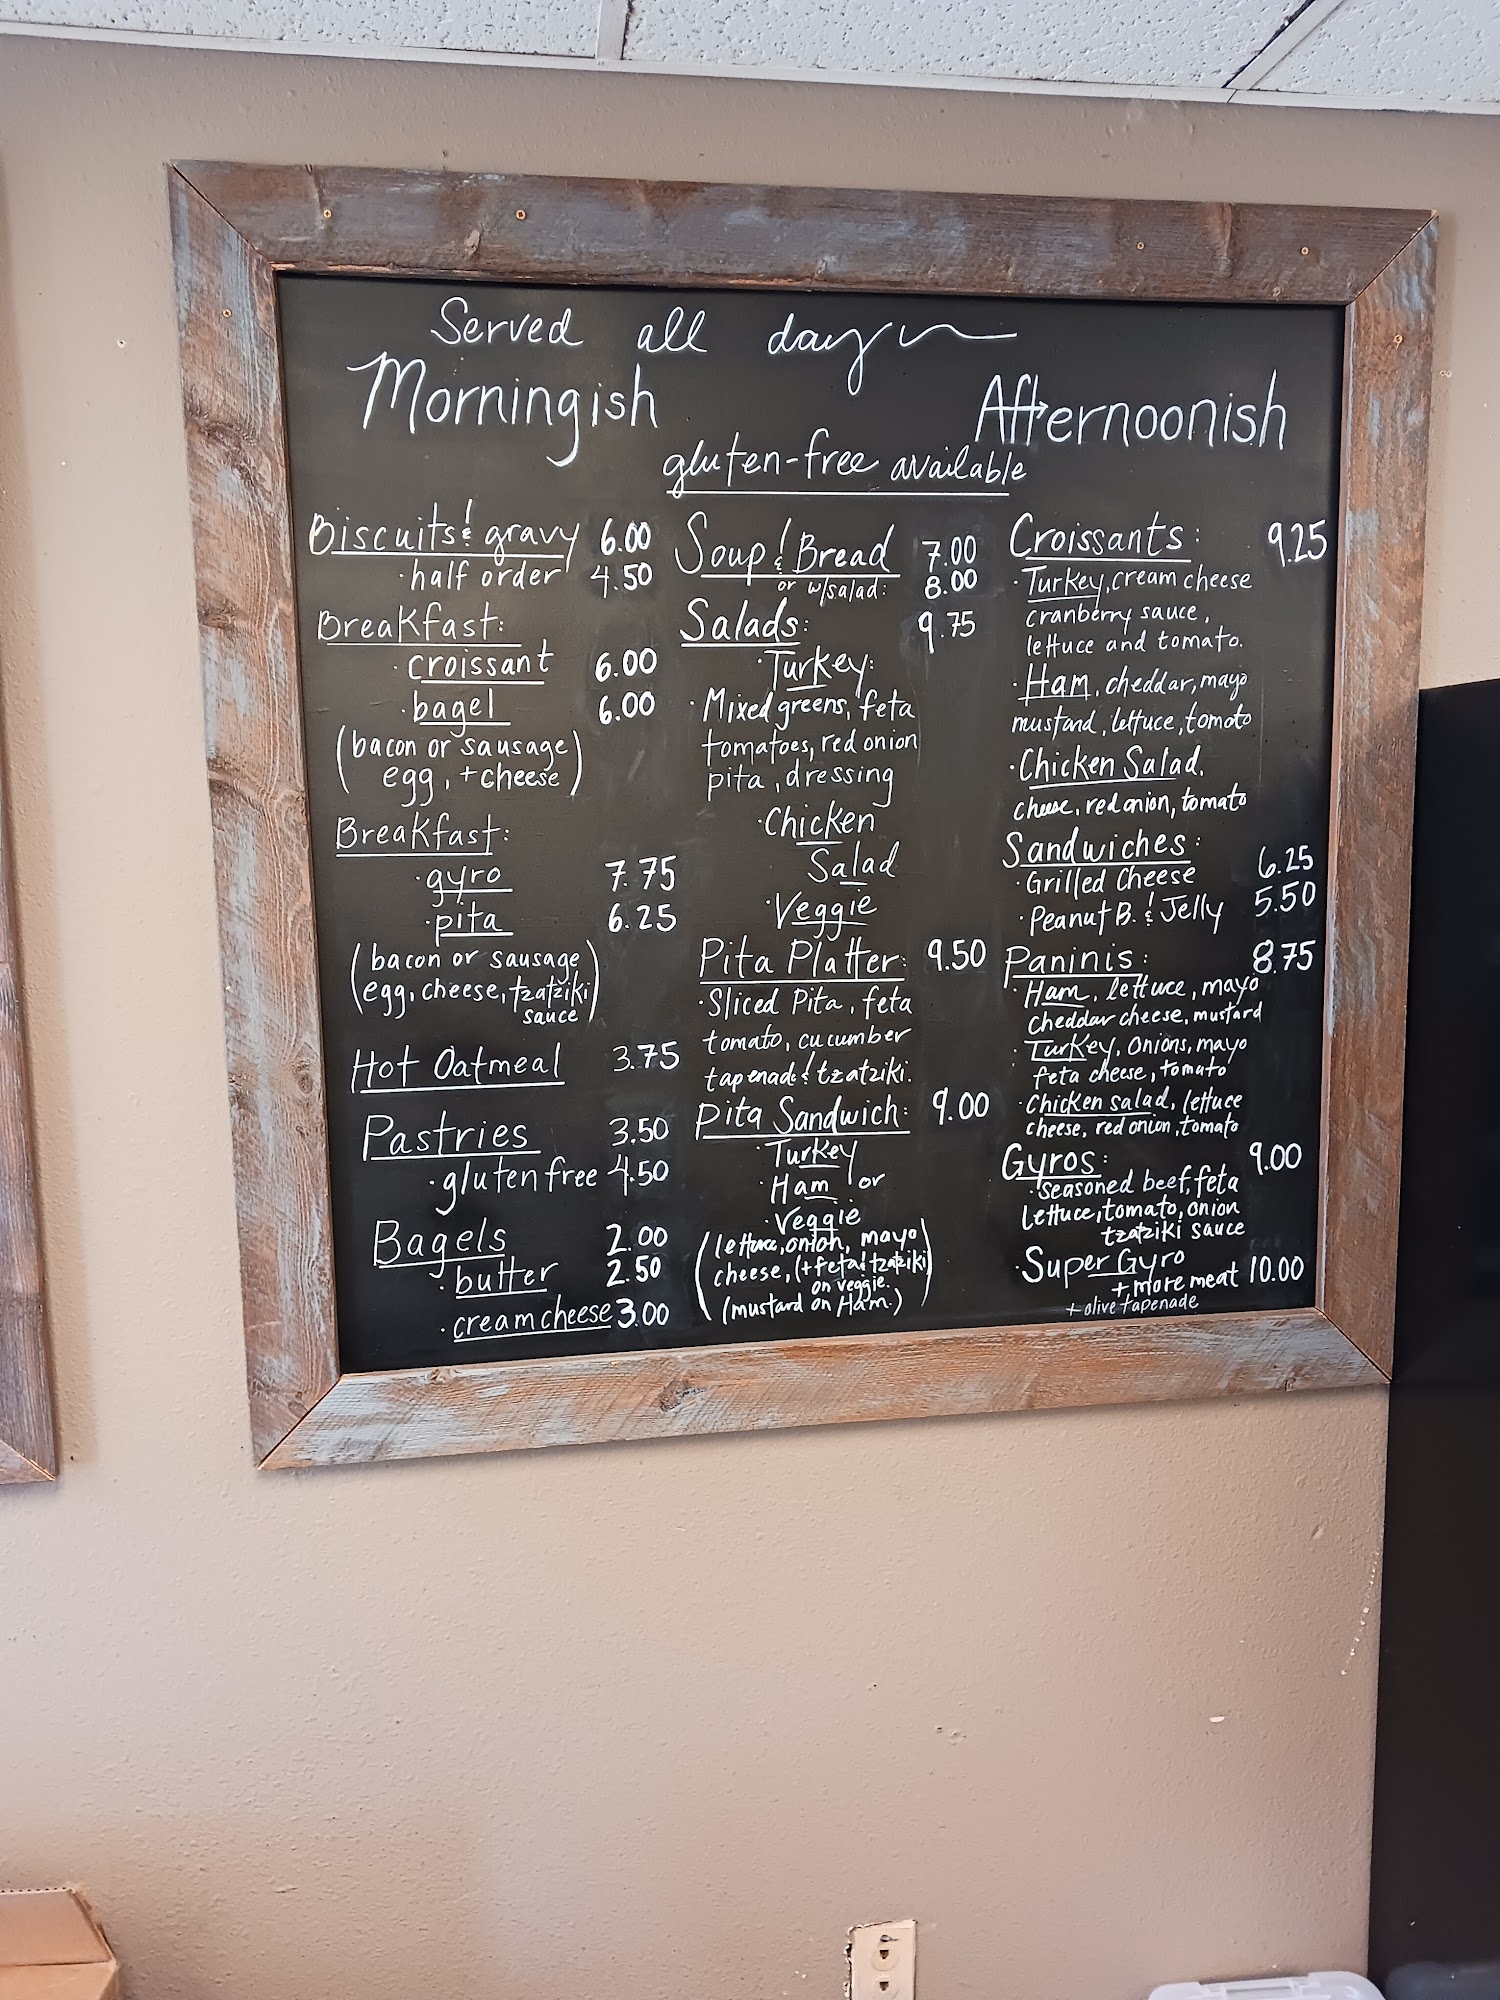 Served all day
Morningish
Afternoonish
gluten-free available
Biscuits & gravy 6.00
· half order 4.50
Breakfast:
· croissant 6.00
· bagel 6.00
(bacon or sausage
egg, + cheese)
Breakfast:
· gyro 7.75
· pita 6.25
(bacon or sausage
egg, cheese, tzatziki
sauce)
Hot Oatmeal 3.75
Pastries 3.50
· gluten free 4.50
Bagels 2.00
· butter 2.50
· cream cheese 3.00
Soup & Bread 7.00
or w/salad: 8.00
Salads: 9.75
· Turkey:
· Mixed greens, feta
tomatoes, red onion
pita, dressing
· Chicken
Salad
· Veggie
Pita Platter: 9.50
· Sliced Pita, feta
tomato, cucumber
tapenade & tzatziki.
Pita Sandwich: 9.00
· Turkey
· Ham or
· Veggie
(lettuce, onion, mayo
cheese, (+ feta & tzatziki)
on veggie.
(mustard on Ham.)
Croissants: 9.25
· Turkey, cream cheese
cranberry sauce,
lettuce and tomato.
· Ham, cheddar, mayo
mustard, lettuce, tomato
· Chicken Salad,
cheese, red onion, tomato
Sandwiches:
· Grilled Cheese 6.25
· Peanut B. & Jelly 5.50
Paninis: 8.75
· Ham, lettuce, mayo
cheddar cheese, mustard
· Turkey, onions, mayo
feta cheese, tomato
· Chicken salad, lettuce
cheese, red onion, tomato
Gyros: 9.00
· seasoned beef, feta
lettuce, tomato, onion
tzatziki sauce
· Super Gyro
+ more meat 10.00
+ olive tapenade